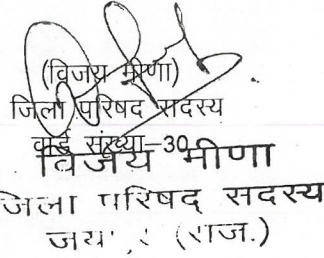 (विजय मीणा)
जिला परिषद सदस्य
वार्ड संख्या–30
विजय मीणा
जिला परिषद् सदस्य
जयपुर (राज.)